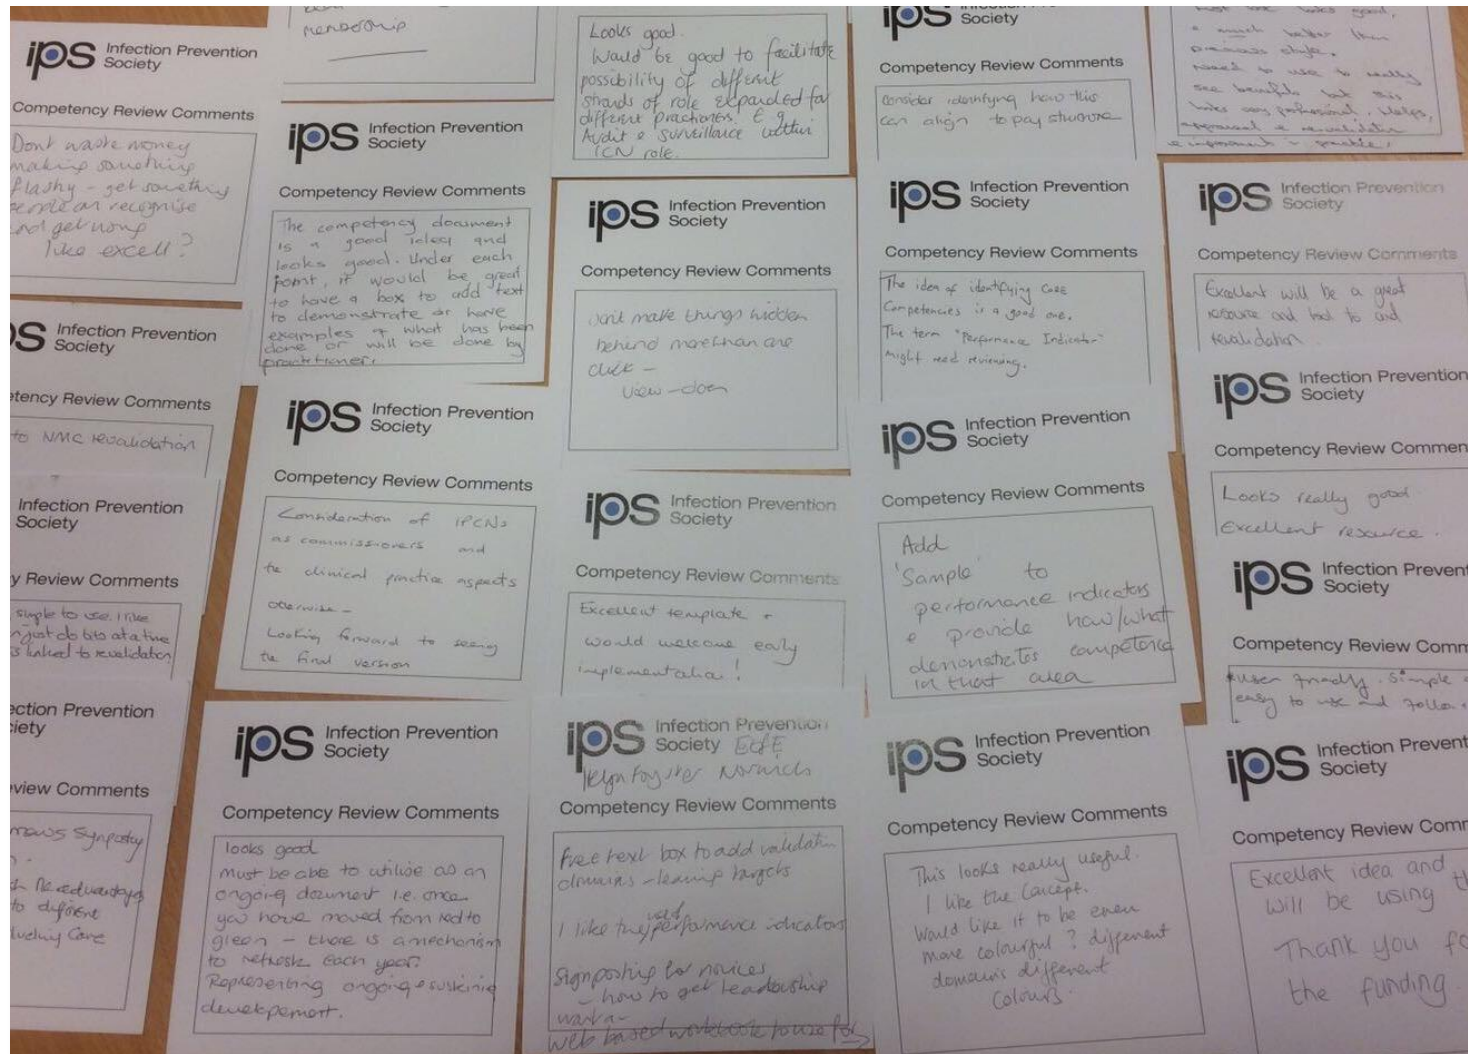 ips Infection Prevention
Society
Competency Review Comments
Dont waste money
making something
flashy - get something
people can recognise
and get using
like excell?
S Infection Prevention
Society
tency Review Comments
to NMC revalidation
Infection Prevention
Society
y Review Comments
simple to use. I like
just do bits at a time
is linked to revalidation
ection Prevention
iety
view Comments
to different
Care
membership
ips Infection Prevention
Society
Competency Review Comments
The competency document
is a good idea and
looks good. Under each
point, it would be great
to have a box to add text
to demonstrate or have
examples of what has been
done or will be done by
practitioner.
ips Infection Prevention
Society
Competency Review Comments
Consideration of IPCNs
as commissioners and
the clinical practice aspects
otherwise -
Looking forward to seeing
the final version
ips Infection Prevention
Society
Competency Review Comments
looks good
must be able to utilise as an
ongoing document i.e. once
you have moved from red to
green - there is a mechanism
to refresh each year?
Representing ongoing &
development.
Looks good.
Would be good to facilitate
possibility of different
strands of role expanded for
different practioners. E.g.
Audit & surveillance within
ICN role.
ips Infection Prevention
Society
Competency Review Comments
Dont make things hidden
behind more than one
click -
view - down
ips Infection Prevention
Society
Competency Review Comments
Excellent template &
would welcome early
implementation!
ips Infection Prevention
Society
Norwich
Competency Review Comments
free text box to add
domains - targets
I like the word performance indicators
signposting for novices
- how to get leadership
web based
ips Society
Competency Review Comments
Consider identifying how this
can align to pay structure
ips Infection Prevention
Society
Competency Review Comments
The idea of identifying CORE
Competencies is a good one.
The term "Performance Indicator"
might need reviewing.
ips Infection Prevention
Society
Competency Review Comments
Add
'Sample' to
performance indicators
& provide how/what
demonstrates competence
in that area
ips Infection Prevention
Society
Competency Review Comments
This looks really useful.
I like the concept.
Would like it to be even
more colourful ? different
domains different
colours.
looks good,
& much better than
previous style.
need to use to really
see benefits but this
looks very professional. Helps,
appraisal & revalidation
ips Infection Prevention
Society
Competency Review Comments
Excellent will be a great
resource and tool to aid
revalidation.
ips Infection Prevention
Society
Competency Review Commen
Looks really good.
Excellent resource.
ips Infection Prevent
Society
Competency Review Comm
user friendly. Simple
easy to use and follow.
ips Infection Prevent
Society
Competency Review Comm
Excellent idea and
will be using th
Thank you fo
the funding.